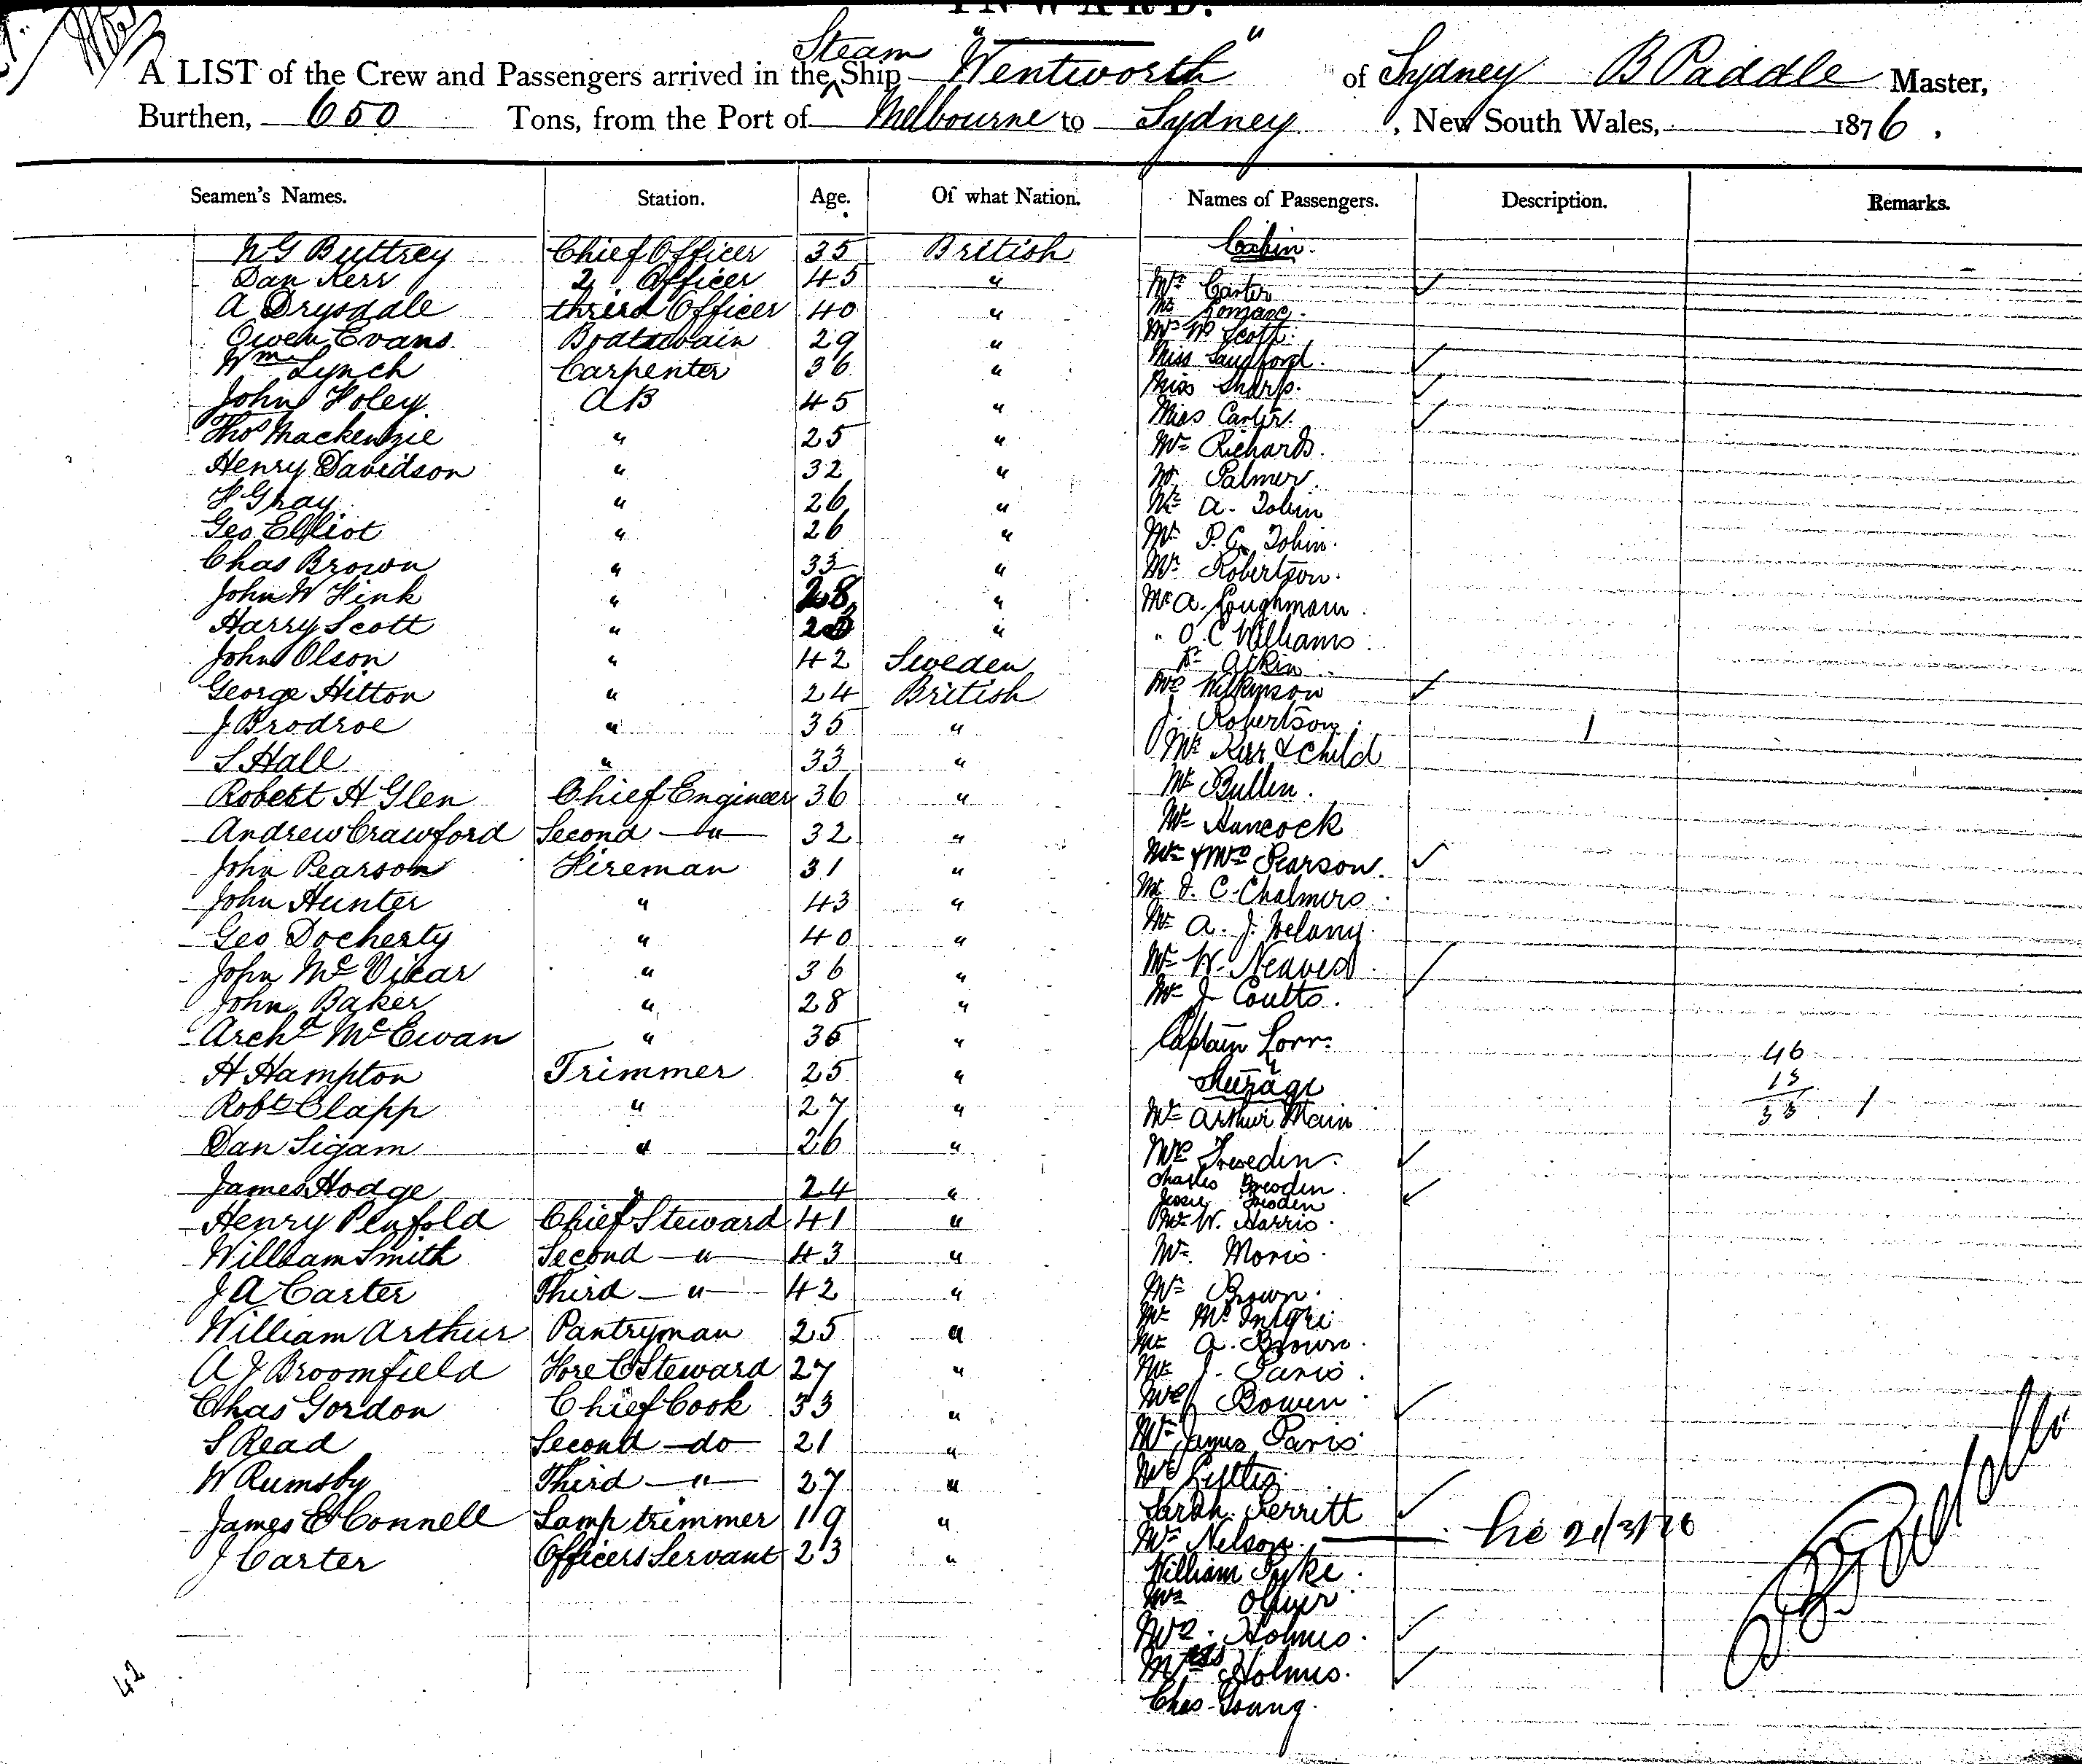 INWARD.
A LIST of the Crew and Passengers arrived in the Steam Ship "Wentworth" of Sydney B Paddle Master,
Burthen, 650 Tons, from the Port of Melbourne to Sydney, New South Wales, 1876.
Seamen's Names. Station. Age. Of what Nation. Names of Passengers. Description. Remarks.
W G Buttrey Chief Officer 35 British Cabin.
Dan Kerr 2 Officer 45 " Mr Carter
A Drysdale third Officer 40 "
Owen Evans Boatswain 29 " Mr W Scott.
Wm Lynch Carpenter 36 " Miss Langford.
John Foley AB 45 " Miss Sharp.
Thos Mackenzie " 25 " Miss Carter.
Henry Davidson " 32 " Mr Richards.
H Gray " 26 " Mr Palmer.
Geo Elliot " 26 " Mr A. Tobin
Chas Brown " 33 " Mr P. C. Tobin.
John W Fink " 28 " Mr Robertson.
Harry Scott " " Mr A. Loughman.
John Olson " 42 Sweden " O. C Williams
George Hilton " 24 British Atkin
J Brodroe " 35 " Mrs Wilkinson
S Hall " 33 " J. Robertson.
Robert H Glen Chief Engineer 36 " Mrs Kerr & Child
Andrew Crawford Second " 32 " Mr Bullen.
John Pearson Fireman 31 " Mr Hancock
John Hunter " 43 " Mr & Mrs Pearson.
Geo Docherty " 40 " Mr D. C. Chalmers.
John McVicar " 36 " Mr A. J. Delany.
John Baker " 28 " Mr W. Neaves.
Archd McEwan " 36 " Mr J Coutts.
H Hampton Trimmer 25 " Captain Lorr. 46
Robt Clapp " 27 " Steerage 13
Dan Sigam " 26 " Mr Arthur Main 33
James Hodge " 24 " Mrs Dresden.
Henry Penfold Chief Steward 41 " Charles Dresden.
William Smith Second " 43 " Jessie Dresden
J A Carter Third " 42 " Mr W. Harris.
William Arthur Pantryman 25 " Mr. Moris.
A J Broomfield Fore C Steward 27 " Mr Brown.
Chas Gordon Chief Cook 33 "
S Read Second do 21 " Mr A. Brown.
W Rumsby Third " 27 " Mr J. Paris.
James E Connell Lamp trimmer 19 " Mrs Bowen
J Carter Officers Servant 23 " Mr James Paris
Sarah Perritt
Mr Nelson.
William Pyke.
Mr Oliver
Mrs. Holmes.
Miss Holmes.
Chas Young.
42